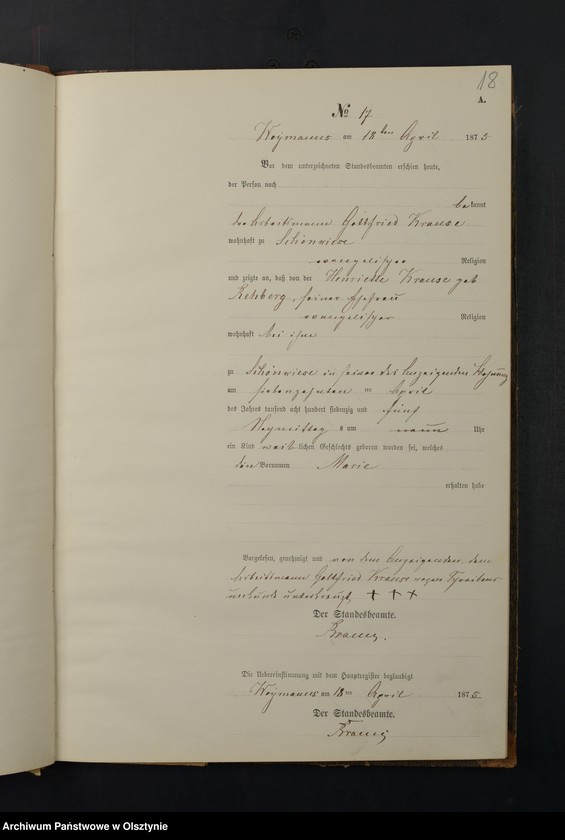 18
A.
No 17
Weymanns am 18ten April 1875
Vor dem unterzeichneten Standesbeamten erschien heute,
der Person nach
bekannt
der Arbeitsmann Gottfried Krause
wohnhaft zu Schönwiese
evangelischer Religion
und zeigte an, daß von der Henriette Krause geb
Rehberg, seiner Ehefrau
evangelischer Religion
wohnhaft bei ihm
zu Schönwiese in seiner des Anzeigenden Wohnung
am siebenzehnten ten April
des Jahres tausend acht hundert siebenzig und fünf
Vormittag s um neun Uhr
ein Kind weiblichen Geschlechts geboren worden sei, welches
den Vornamen Marie
erhalten habe
Vorgelesen, genehmigt und von dem Anzeigenden, dem
Arbeitsmann Gottfried Krause wegen Schreibens
unkunde unterkreuzt, + + +
Der Standesbeamte.
Die Uebereinstimmung mit dem Hauptregister beglaubigt
Weymanns am 18ten April 1875
Der Standesbeamte.
Archiwum Państwowe w Olsztynie